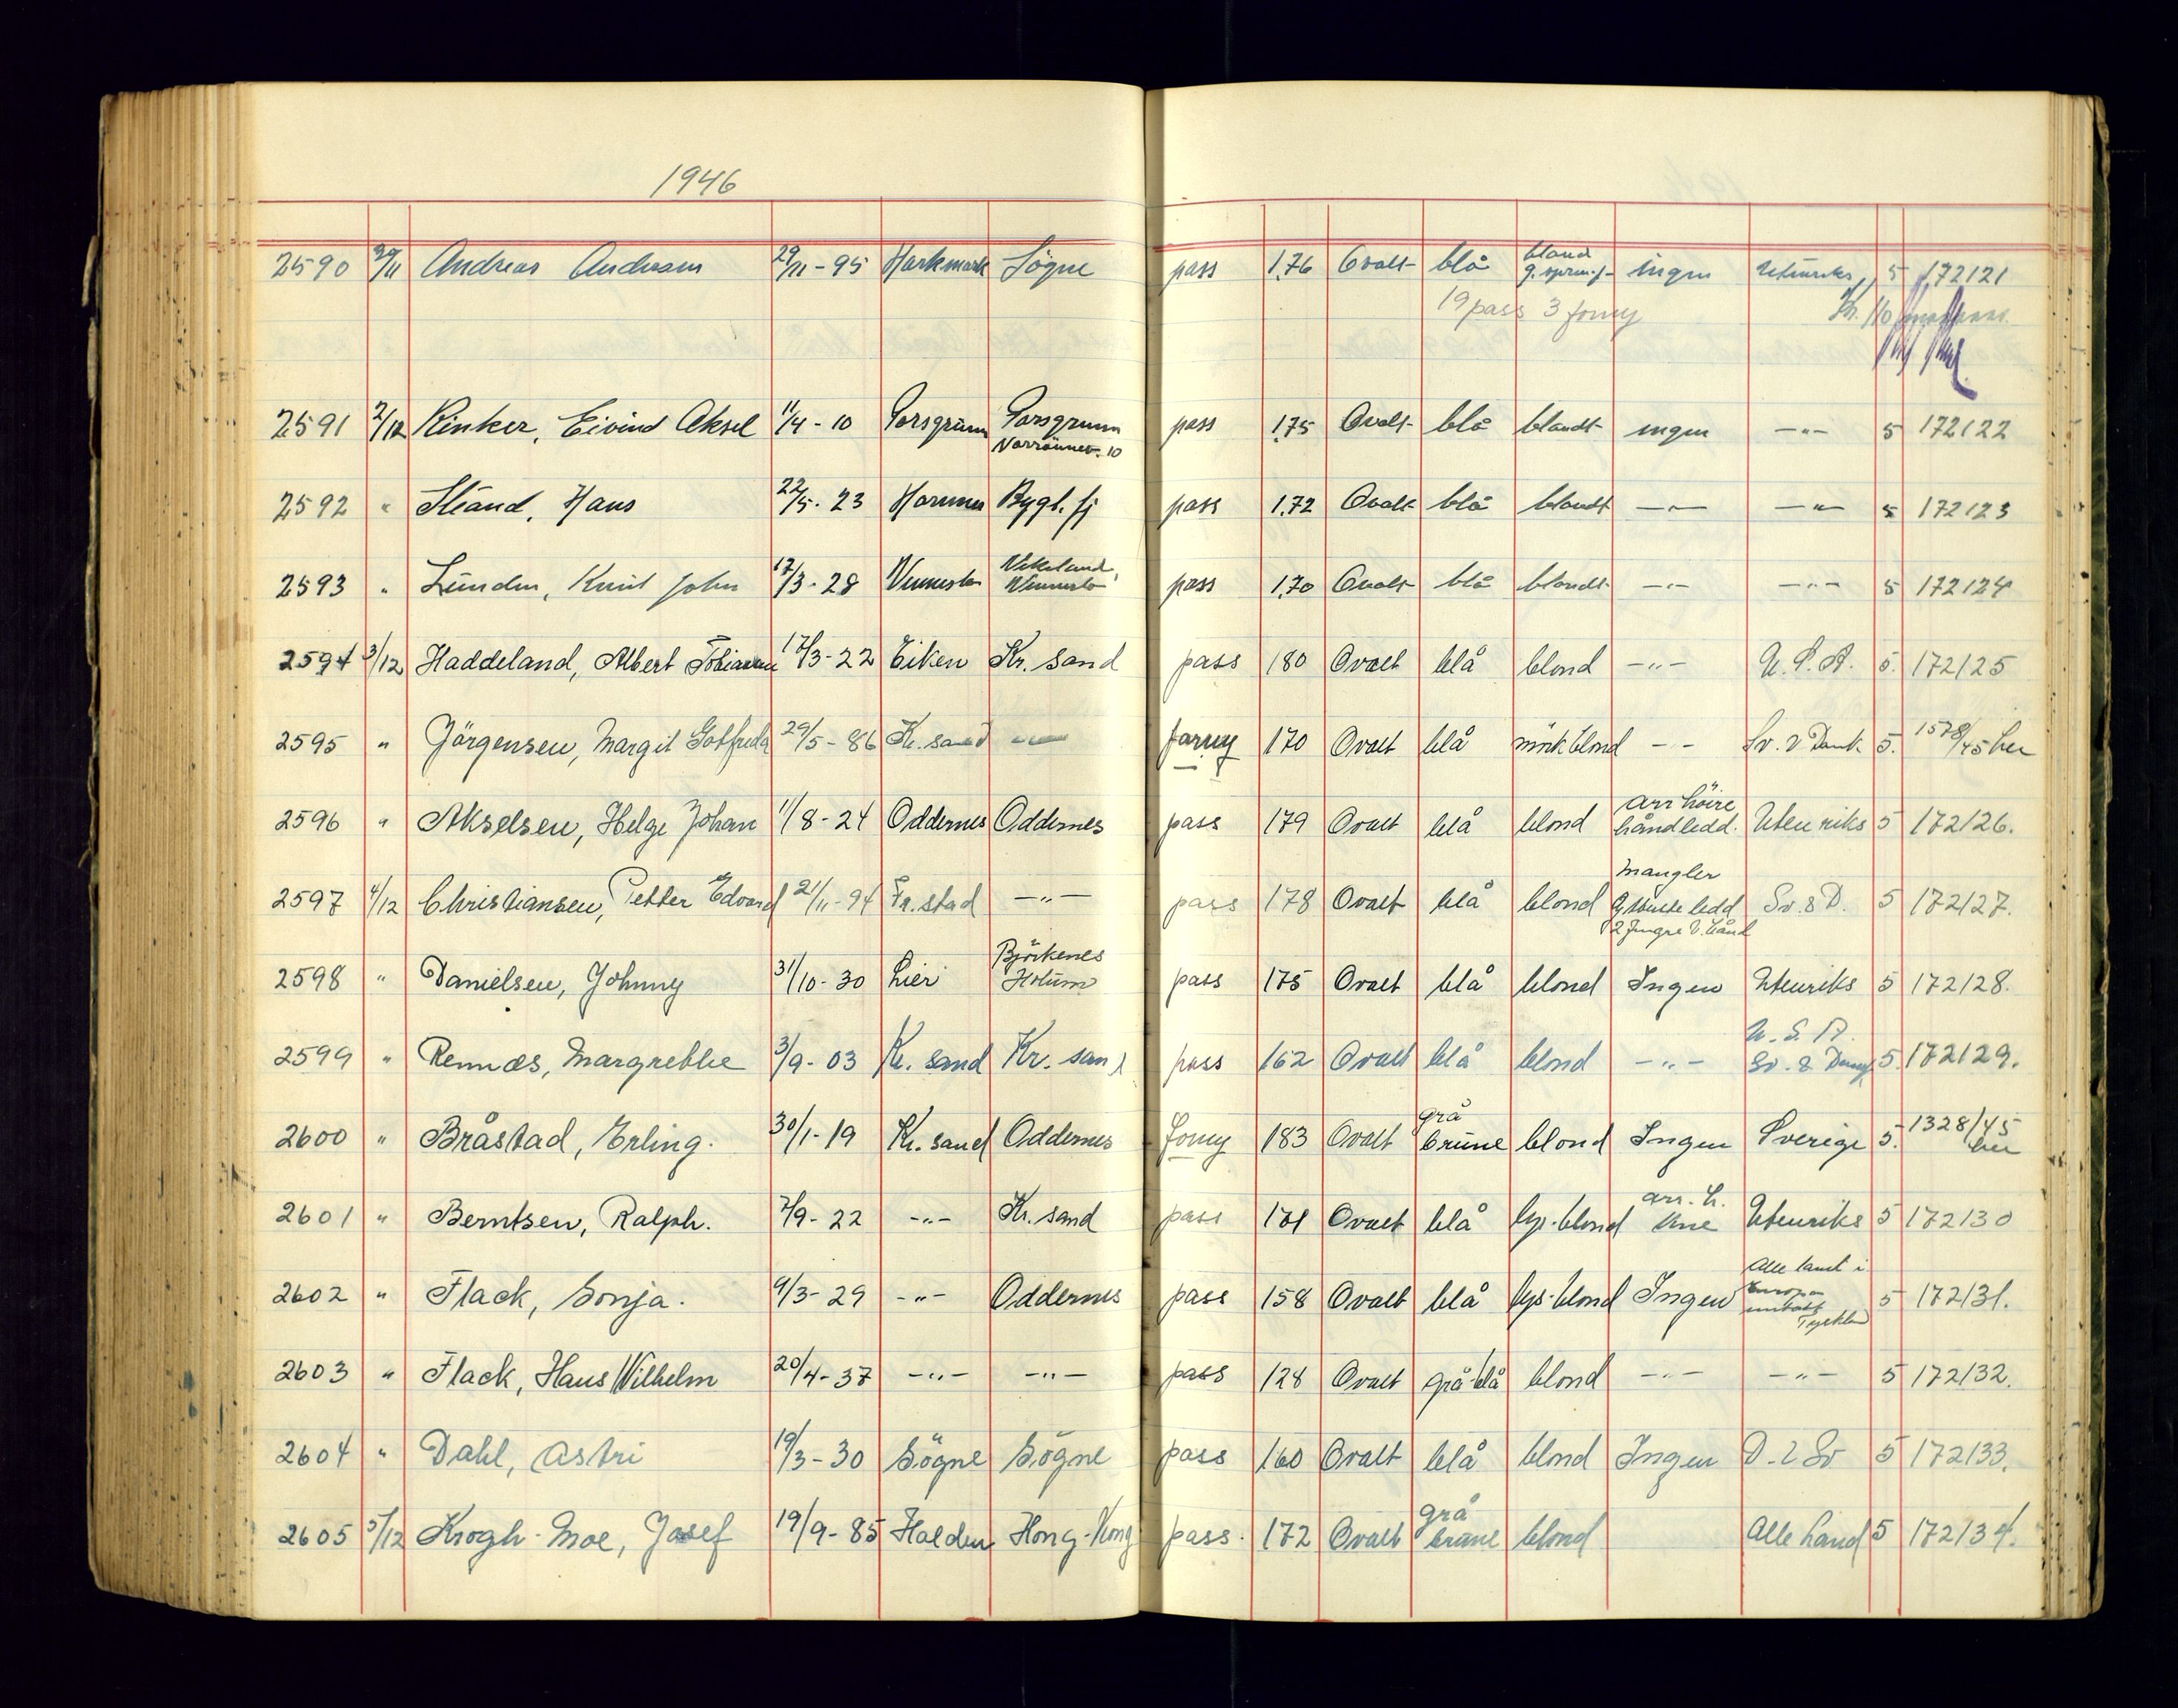 1946
2590 Andreas 29/11 - 95 Harkmark Søgne pass 1.76 Ovalt blå blond ingen 5 172121
19 pass 3 forny
2591 2/12 Rinker, Eivind Aksel 11/4 - 10 Porsgrunn Porsgrunn pass 1.75 Ovalt blå blondt ingen —"— 5 172122
2592 " Hans 22/5 - 23 Bygl. fj pass 1.72 Ovalt blå blondt —"— —"— 5 172123
2593 " Lunden, Knut John 17/3 - 28 Vennesla Vikeland Vennesla pass 1.70 Ovalt blå blondt —"— —"— 5 172124
2594 3/12 Haddeland, Albert 17/3 - 22 Eiken Kr. sand pass 180 Ovalt blå blond —"— U.S.A. 5. 172125
2595 " Jörgensen, Margit Gotfreda 29/5 - 86 Kr. sand —"— forny 170 Ovalt blå mörk blond —"— Sv. & Dank 5. 1578/45 her
2596 " Akselsen, Helge Johan 1/8 - 24 Oddernes Oddernes pass 179 Ovalt blå blond arr höire håndledd. Utenriks 5 172126.
2597 4/12 Christiansen, Petter Edvard 21/11 - 94 Fr. stad —"— pass 178 Ovalt blå blond mangler ledd 2 fingre V. hånd Sv. & D. 5 172127.
2598 " Danielsen, Johnny 31/10 - 30 Lier Björkenes Holum pass 175 Ovalt blå blond Ingen Utenriks 5 172128.
2599 " Rennæs, Margrethe 3/9 - 03 Kr. sand Kr. sand pass 162 Ovalt blå blond —"— U.S.A. Sv. & Danm 5. 172129.
2600 " Bråstad, Erling. 30/1 - 19 Kr. sand Oddernes forny 183 Ovalt grå brune blond Ingen Sverige 5. 1328/45 her
2601 " Berntsen, Ralph. 7/9 - 22 —"— Kr. sand pass Ovalt blå lys. blond arr. h. kne Utenriks 5 172130
2602 " Flack, Sonja. 9/3 - 29 —"— Oddernes pass 158 Ovalt blå lys. blond Ingen Alle land i Europa untatt Tyskland 5 172131.
2603 " Flack, Hans Wilhelm 20/4 - 37 —"— —"— pass 128 Ovalt grå-blå blond —"— —"— 5 172132.
2604 " Dahl, Astri 19/3 - 30 Sögne Sögne pass 160 Ovalt blå blond Ingen D. & Sv 5 172133.
2605 5/12 Krogh-Moe, Josef 19/9 - 85 Halden Hong-Kong pass. 172 Ovalt grå brune blond Alle land 5 172134.